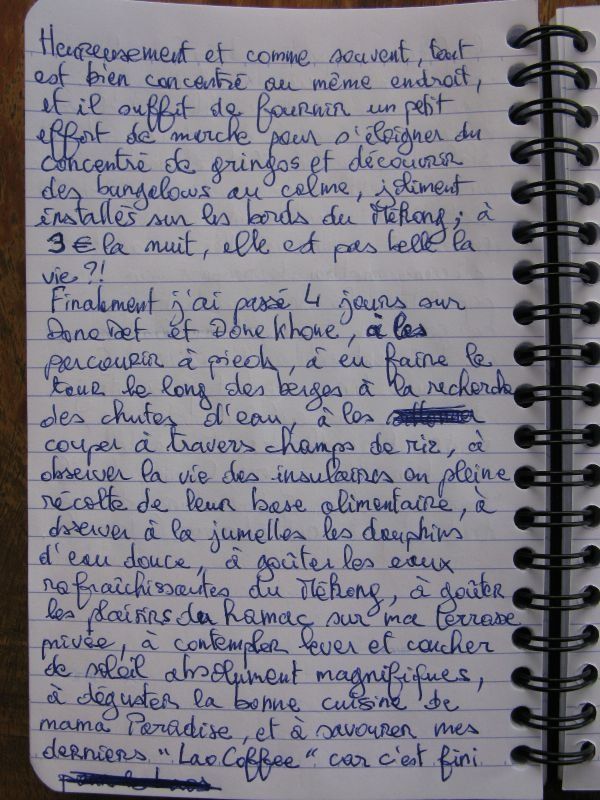 Heureusement et comme souvent, tout
est bien concentré au même endroit,
et il suffit de fournir un petit
effort de marche pour s'éloigner du
concentré de gringos et découvrir
des bungalows au calme, joliment
installés sur les bords du Mékong; à
3 € la nuit, elle est pas belle la
vie ?!
Finalement j'ai passé 4 jours sur
Done Det et Done Khone, à les
parcourir à pieds, à en faire le
tour le long des berges à la recherche
des chutes d'eau, à les
couper à travers champs de riz, à
observer la vie des insulaires en pleine
récolte de leur base alimentaire, à
observer à la jumelles les dauphins
d'eau douce, à goûter les eaux
rafraîchissantes du Mékong, à goûter
les plaisirs du hamac sur ma terrasse
privée, à contempler lever et coucher
de soleil absolument magnifiques,
à déguster la bonne cuisine de
mama Paradise, et à savourer mes
derniers "Lao Coffee" car c'est fini